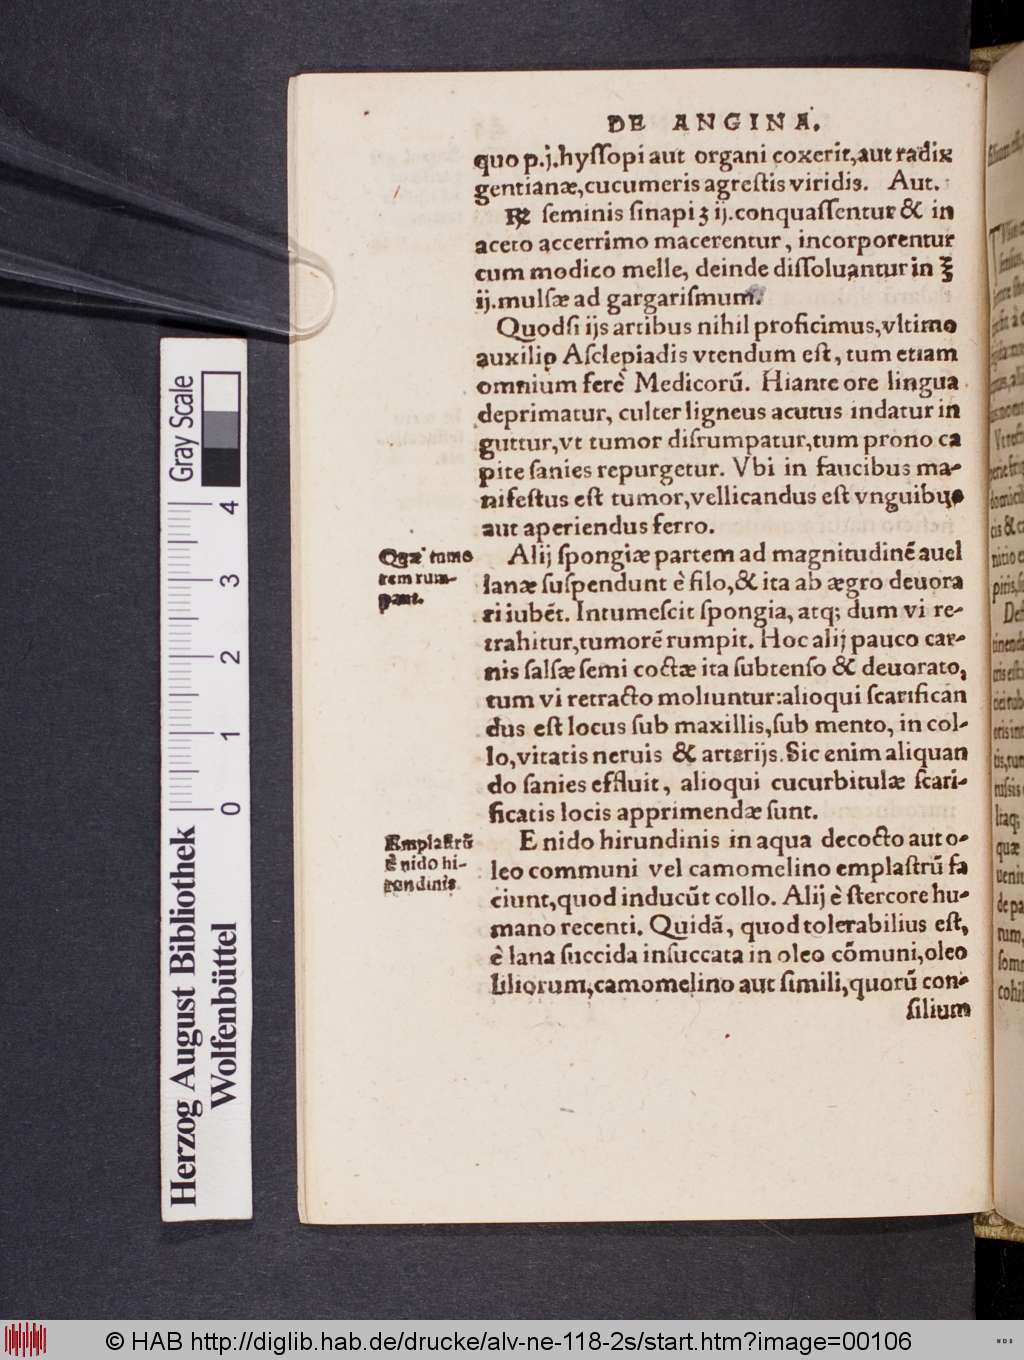 DE ANGINA.
quo p.j.hyſſopi aut organi coxerit,aut radix
gentianæ,cucumeris agreſtis viridis. Aut.
℞ ſeminis ſinapi ʒ ij.conquaſſentur & in
aceto accerrimo macerentur, incorporentur
cum modico melle, deinde diſſoluantur in ℥
ij.mulſæ ad gargariſmum.
Quodſi ijs artibus nihil proficimus,vltimo
auxilio Aſclepiadis vtendum eſt, tum etiam
omnium ferè Medicorū. Hiante ore lingua
deprimatur, culter ligneus acutus indatur in
guttur,vt tumor diſrumpatur,tum prono ca
pite ſanies repurgetur. Vbi in faucibus ma-
nifeſtus eſt tumor,vellicandus eſt vnguibus
aut aperiendus ferro.
Quæ tumo
rem rum-
pant.
Alij ſpongiæ partem ad magnitudinē auel
lanæ ſuſpendunt è filo,& ita ab ægro deuora
ri iubēt. Intumeſcit ſpongia, atq; dum vi re-
trahitur,tumorē rumpit. Hoc alij pauco car-
nis ſalſæ ſemi coctæ ita ſubtenſo & deuorato,
tum vi retracto moliuntur:alioqui ſcarifican
dus eſt locus ſub maxillis,ſub mento, in col-
lo,vitatis neruis & arterijs. Sic enim aliquan
do ſanies effluit, alioqui cucurbitulæ ſcari-
ficatis locis apprimendæ ſunt.
Emplaſtrū
è nido hi-
rondinis.
E nido hirundinis in aqua decocto aut o-
leo communi vel camomelino emplaſtrū fa
ciunt,quod inducūt collo. Alij è ſtercore hu-
mano recenti. Quidā, quod tolerabilius eſt,
è lana ſuccida inſuccata in oleo cōmuni,oleo
liliorum,camomelino aut ſimili,quorū con-
ſilium
Gray Scale
4
3
2
1
0
Herzog August Bibliothek
Wolfenbüttel
© HAB http://diglib.hab.de/drucke/alv-ne-118-2s/start.htm?image=00106